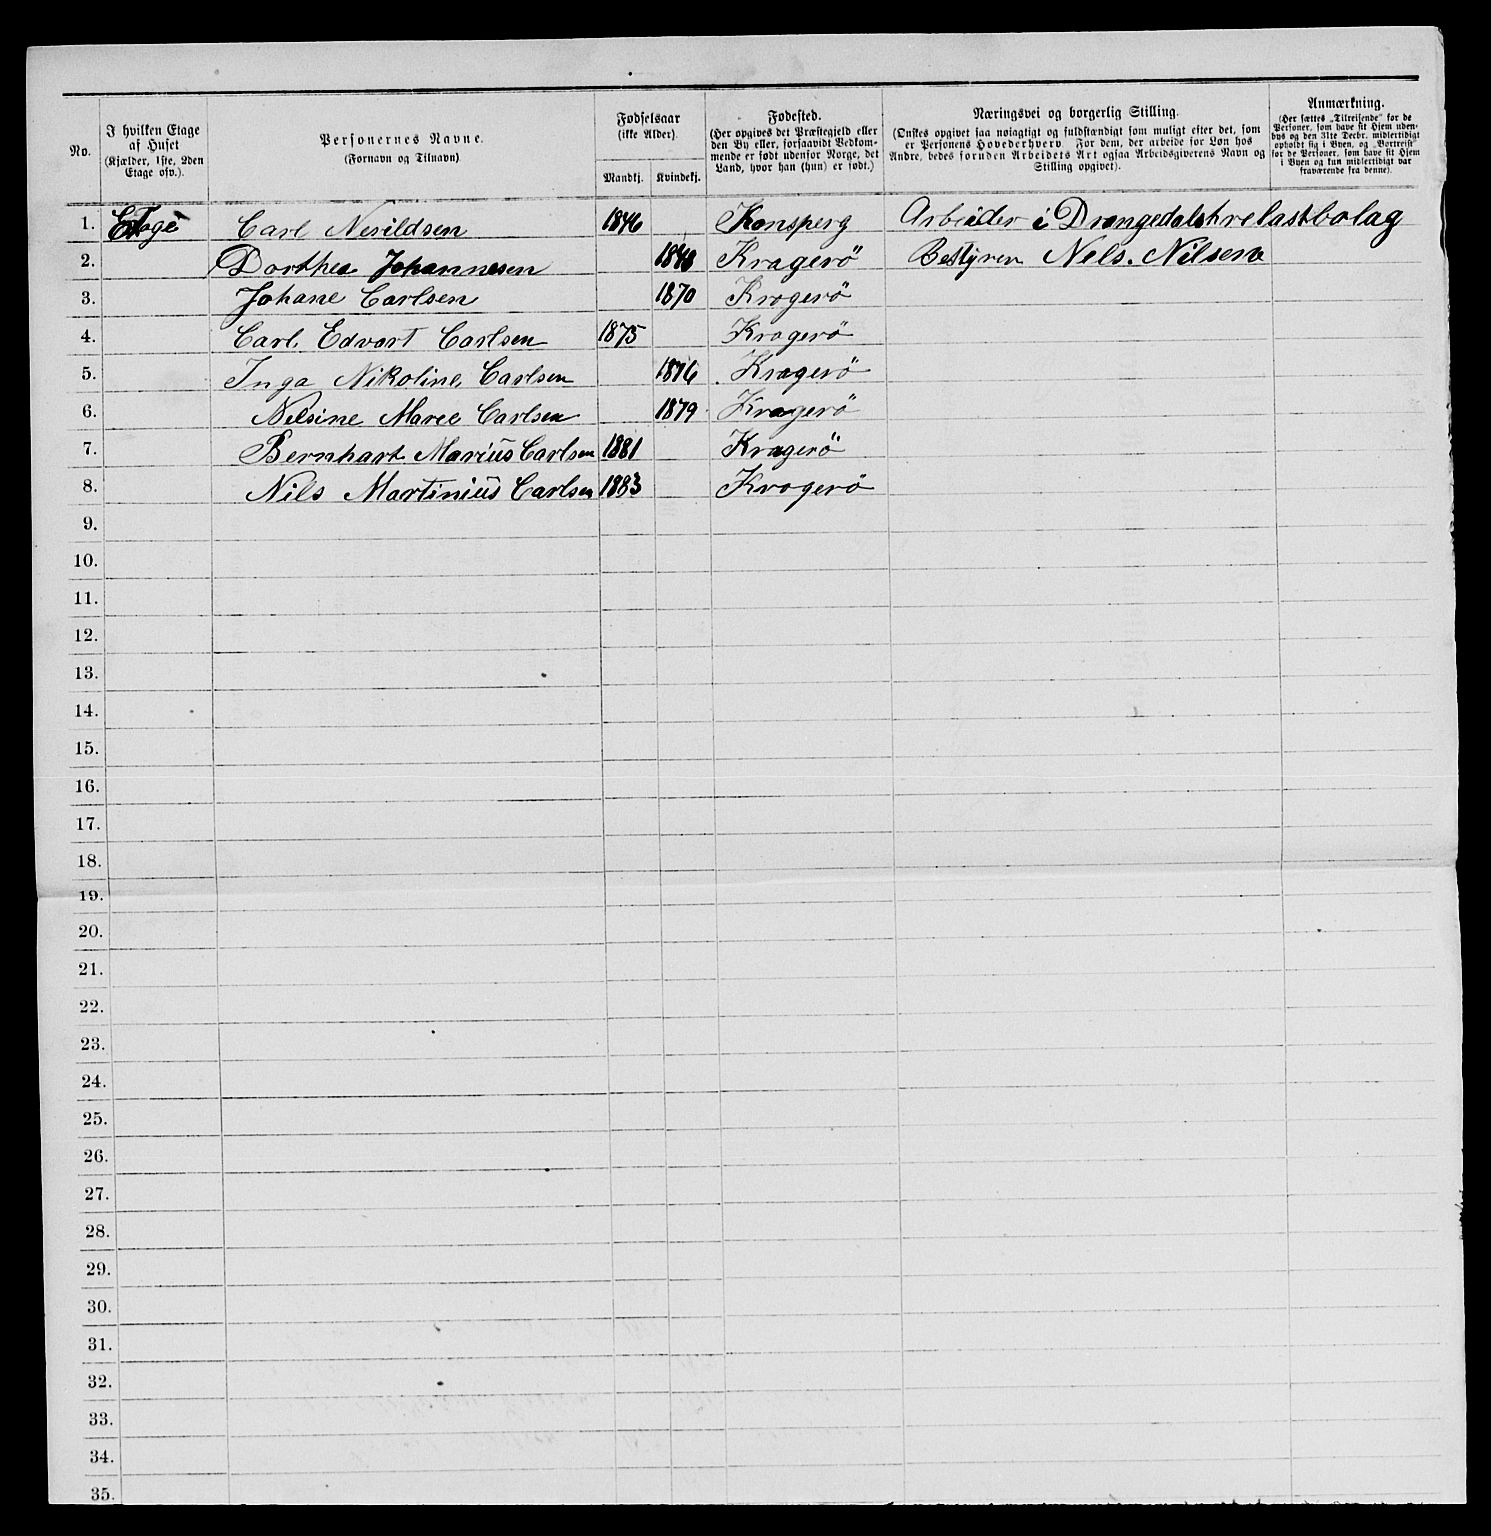 No.
I hvilken Etage af Huset (Kjælder, 1ste, 2den Etage osv.).
Personernes Navne. (Fornavn og Tilnavn)
Fødselsaar (ikke Alder).
Mandkj. Kvindekj.
Fødested. (Her opgives det Præstegjeld eller den By eller, forsaavidt Vedkommende er født udenfor Norge, det Land, hvor han (hun) er født.)
Næringsvei og borgerlig Stilling. (Ønskes opgivet saa nøiagtigt og fuldstændigt som muligt efter det, som er Personens Hovederhverv. For dem, der arbeide for Løn hos Andre, bedes foruden Arbeidets Art ogsaa Arbeidsgiverens Navn og Stilling opgivet).
Anmærkning. (Her sættes „Tilreisende“ for de Personer, som have sit Hjem udenbys og den 31te Decbr. midlertidigt opholdt sig i Byen, og „Bortreist“ for de Personer, som have sit Hjem i Byen og kun midlertidigt var fraværende fra denne).
1. Etage Carl Nerildsen 1846 Konsperg Arbeider i Drangedalstrelastbolag
2. Dorthea Johannesen 1848 Kragerö Bestyrer Nels. Nilsen
3. Johane Carlsen 1870 Kragerö
4. Carl Edvart Carlsen 1875 Kragerö
5. Inga Nikoline Carlsen 1876 Kragerö
6. Nelsine Maree Carlsen 1879 Kragerö
7. Bernhart Marius Carlsen 1881 Kragerö
8. Nils Martinius Carlsen 1883 Kragerö
9.
10.
11.
12.
13.
14.
15.
16.
17.
18.
19.
20.
21.
22.
23.
24.
25.
26.
27.
28.
29.
30.
31.
32.
33.
34.
35.